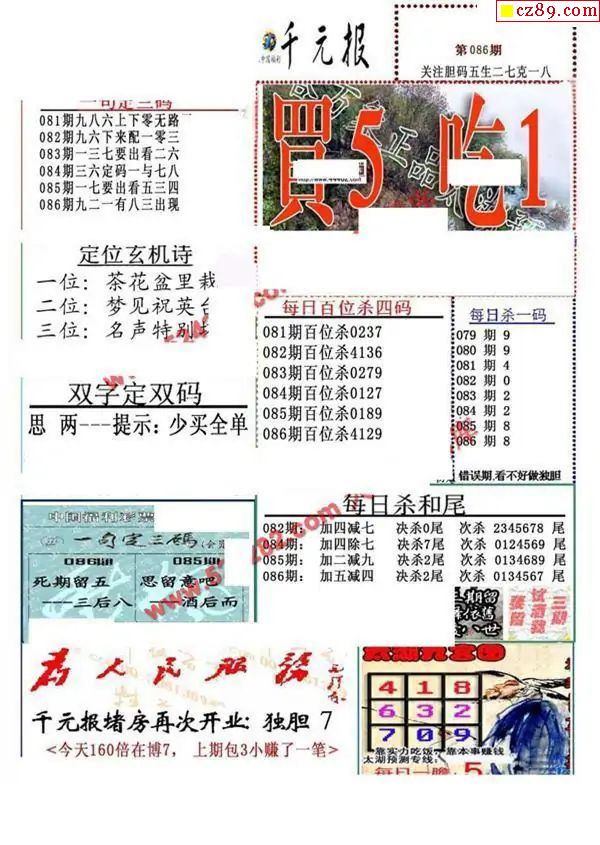 cz89.com
千元报
第086期
关注胆码五生二七克一八
一句定三码
081期九八六上下零无路
082期九六下来配一零三
083期一三七要出看二六
084期三六定码一与七八
085期一七要出看五三四
086期九二一有八三出现
買5 吃1
定位玄机诗
一位：茶花盆里栽
二位：梦见祝英台
三位：名声特别
每日百位杀四码
081期百位杀0237
082期百位杀4136
083期百位杀0279
084期百位杀0127
085期百位杀0189
086期百位杀4129
每日杀一码
079 期 9
080 期 9
081 期 4
082 期 0
084 期 2
085 期 8
086 期 8
错误期,看不好做独胆
双字定双码
思 两---提示：少买全单
每日杀和尾
082期： 加四减七 决杀0尾 次杀 2345678 尾
084期： 加四除七 决杀7尾 次杀 0124569 尾
085期： 加二减九 决杀2尾 次杀 0134689 尾
086期： 加五减四 决杀2尾 次杀 0134567 尾
中国福利彩票
一句定三码
086期 085期
死期留五 思留意吧
---三后八 ---酒后而
为人民服务
千元报堵房再次开业：独胆 7
<今天160倍在博7， 上期包3小赚了一笔>
太湖九宫图
4 1 8
6 3 2
7 0 9
靠实力吃饭，靠本事赚钱
太湖预测专线：
每日一胆 5